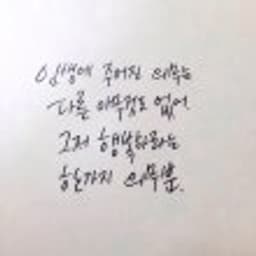 인생에 주어진 의무는
다른 아무것도 없어.
그저 행복하라는
한가지 의무뿐.